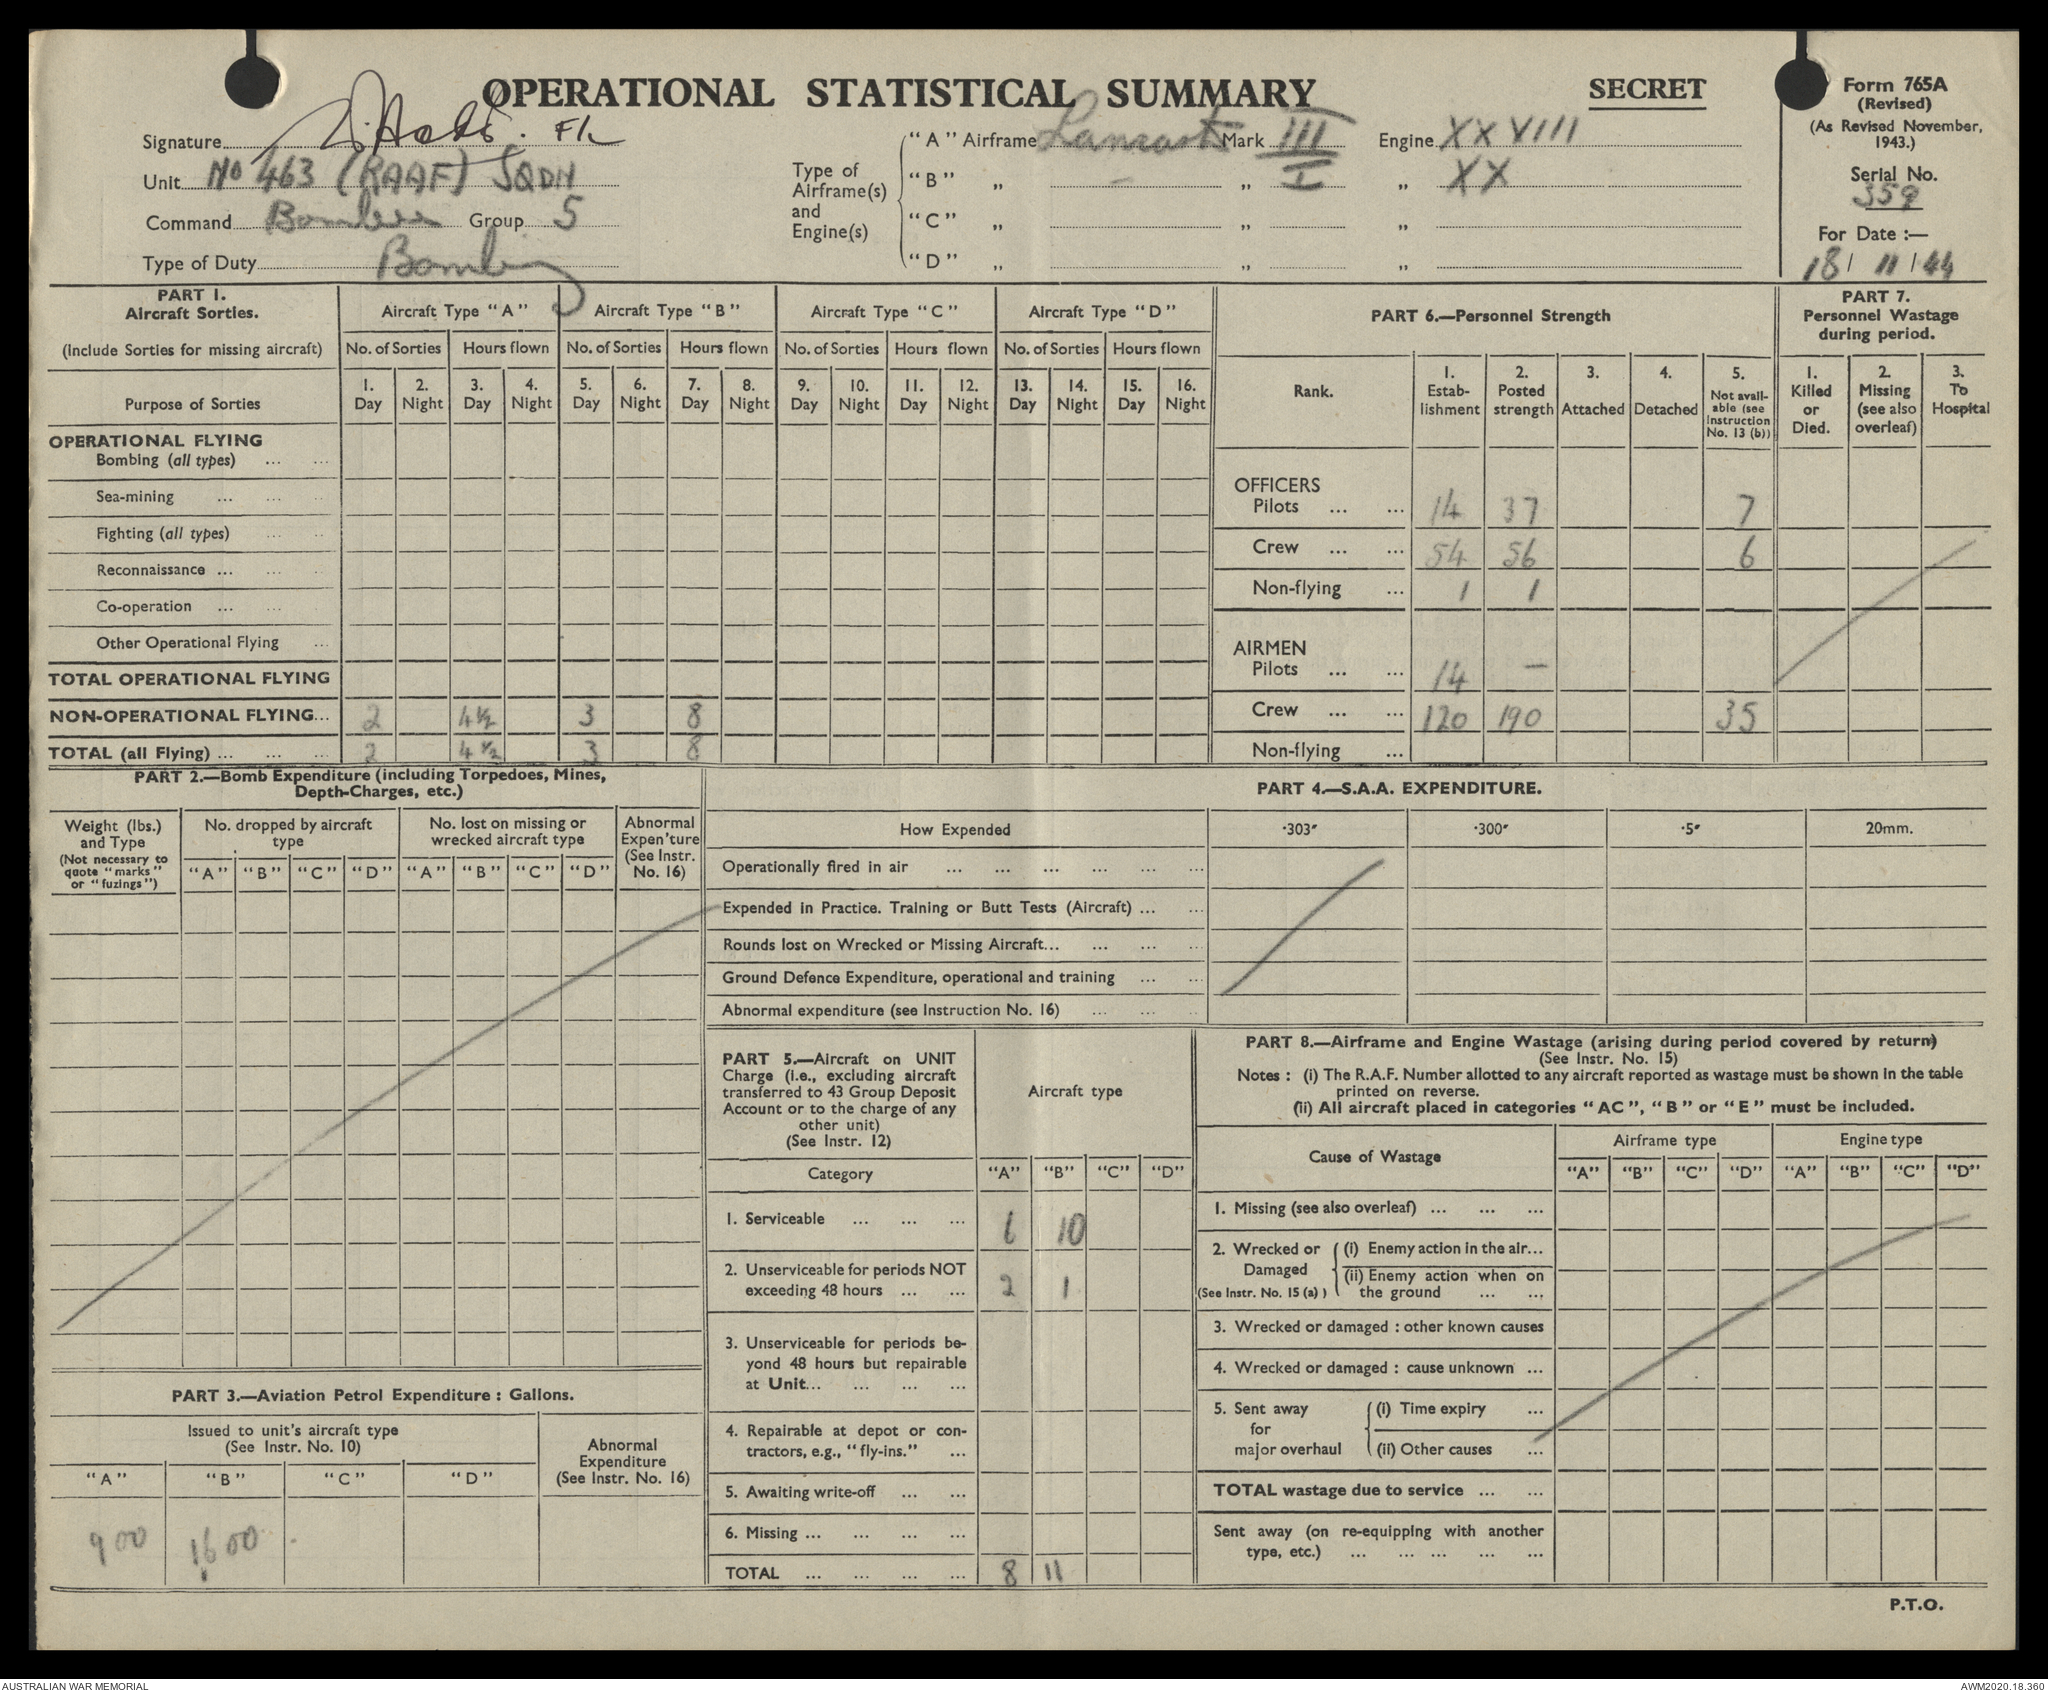 OPERATIONAL STATISTICAL SUMMARY
SECRET
Form 765A
(Revised)
(As Revised November, 1943.)
Serial No.
359
For Date :—
18 / 11 / 44
Signature F/L
Unit No 463 (RAAF) SQDN
Command Bomber Group 5
Type of Duty Bombing
Type of Airframe(s) and Engine(s)
"A" Airframe Lancaster Mark III Engine XXVIII
"B" „ — „ I „ XX
"C" „ „ „
"D" „ „ „
PART 1.
Aircraft Sorties.
(Include Sorties for missing aircraft)
Aircraft Type "A" Aircraft Type "B" Aircraft Type "C" Aircraft Type "D"
No. of Sorties Hours flown No. of Sorties Hours flown No. of Sorties Hours flown No. of Sorties Hours flown
Purpose of Sorties
1. Day 2. Night 3. Day 4. Night 5. Day 6. Night 7. Day 8. Night 9. Day 10. Night 11. Day 12. Night 13. Day 14. Night 15. Day 16. Night
OPERATIONAL FLYING
Bombing (all types) ... ...
Sea-mining ... ...
Fighting (all types) ... ...
Reconnaissance ... ...
Co-operation ... ...
Other Operational Flying ...
TOTAL OPERATIONAL FLYING
NON-OPERATIONAL FLYING... 2 4½ 3 8
TOTAL (all Flying) ... ... ... 2 4½ 3 8
PART 6.—Personnel Strength
Rank.
1. Establishment
2. Posted strength
3. Attached
4. Detached
5. Not available (see Instruction No. 13 (b))
OFFICERS
Pilots ... ... 14 37 7
Crew ... ... 54 56 6
Non-flying ... 1 1
AIRMEN
Pilots ... ... 14 —
Crew ... ... 120 190 35
Non-flying ...
PART 7.
Personnel Wastage during period.
1. Killed or Died.
2. Missing (see also overleaf)
3. To Hospital
PART 2.—Bomb Expenditure (including Torpedoes, Mines,
Depth-Charges, etc.)
Weight (lbs.) and Type
(Not necessary to quote "marks" or "fuzings")
No. dropped by aircraft type
No. lost on missing or wrecked aircraft type
Abnormal Expen'ture (See Instr. No. 16)
"A" "B" "C" "D" "A" "B" "C" "D"
PART 4.—S.A.A. EXPENDITURE.
How Expended ·303″ ·300″ ·5″ 20mm.
Operationally fired in air ... ... ... ... ... ...
Expended in Practice. Training or Butt Tests (Aircraft) ... ...
Rounds lost on Wrecked or Missing Aircraft... ... ... ...
Ground Defence Expenditure, operational and training ... ...
Abnormal expenditure (see Instruction No. 16) ... ... ...
PART 3.—Aviation Petrol Expenditure : Gallons.
Issued to unit's aircraft type
(See Instr. No. 10)
Abnormal Expenditure (See Instr. No. 16)
"A" "B" "C" "D"
900 1600
PART 5.—Aircraft on UNIT
Charge (i.e., excluding aircraft
transferred to 43 Group Deposit
Account or to the charge of any
other unit)
(See Instr. 12)
Aircraft type
Category "A" "B" "C" "D"
1. Serviceable ... ... ... 6 10
2. Unserviceable for periods NOT
exceeding 48 hours ... ... 2 1
3. Unserviceable for periods be-
yond 48 hours but repairable
at Unit... ... ... ...
4. Repairable at depot or con-
tractors, e.g., "fly-ins." ...
5. Awaiting write-off ... ...
6. Missing ... ... ... ...
TOTAL ... ... ... ... 8 11
PART 8.—Airframe and Engine Wastage (arising during period covered by return)
(See Instr. No. 15)
Notes : (i) The R.A.F. Number allotted to any aircraft reported as wastage must be shown in the table
printed on reverse.
(ii) All aircraft placed in categories "AC", "B" or "E" must be included.
Cause of Wastage Airframe type Engine type
"A" "B" "C" "D" "A" "B" "C" "D"
1. Missing (see also overleaf) ... ... ...
2. Wrecked or Damaged (See Instr. No. 15 (a) )
(i) Enemy action in the air...
(ii) Enemy action when on
the ground ... ...
3. Wrecked or damaged : other known causes
4. Wrecked or damaged : cause unknown ...
5. Sent away for major overhaul
(i) Time expiry ...
(ii) Other causes ...
TOTAL wastage due to service ... ...
Sent away (on re-equipping with another
type, etc.) ... ... ... ... ...
P.T.O.
AUSTRALIAN WAR MEMORIAL
AWM2020.18.360